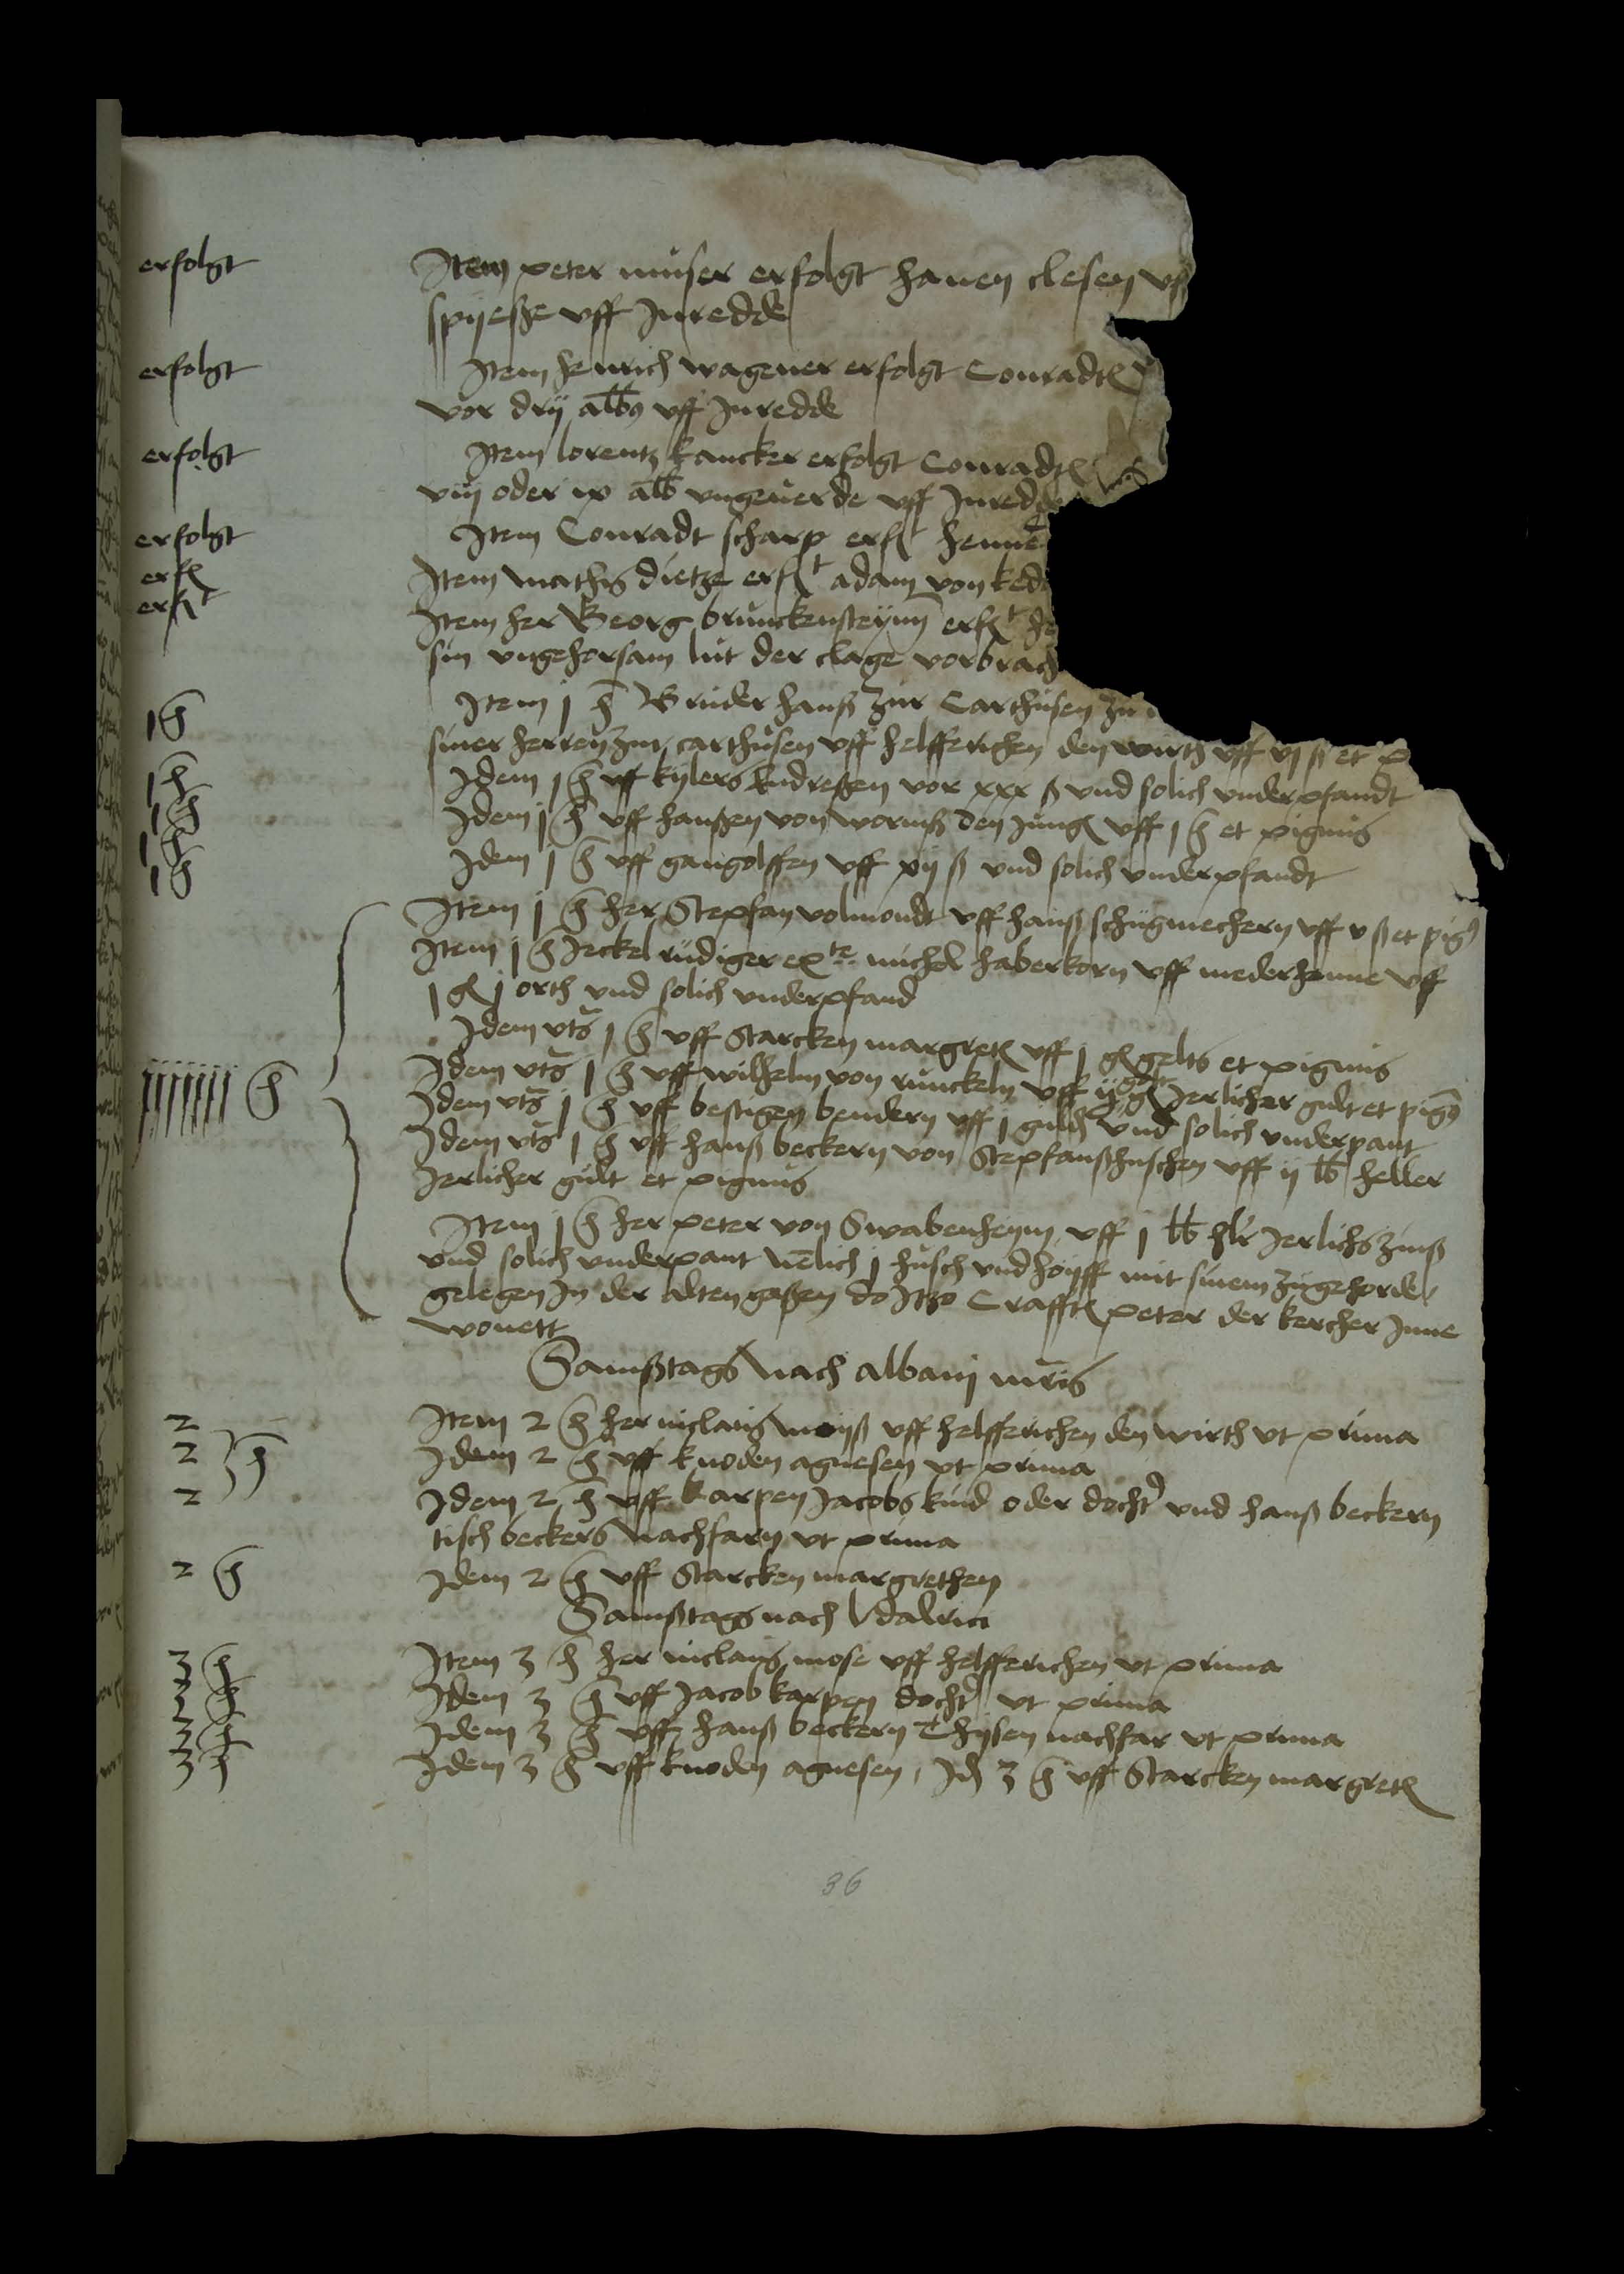 erfolgt Item peter muser erfolgt hanen clesen vff
spyeße vff Inredde
erfolgt Item henrich wagener erfolgt Conradt
vor drij albus vff Inredde
erfolgt Item lorentz kancker erfolgt Conradt
viij oder ix alb ungeuerde vff Inredde
erfolgt Item Conradt scharp erft henne
erf Item mathis dietze erft adam von ked
erft Item her Georg brunckensteynn erft he
sin ungehorsam lut der clage vorbrach
1 h Item j h Bruder hanß zur Carthusen zu
siner herren zur carthusen vff helfferichen den wirth vff vj ß et p
1 h Idem j h vff kylers endreßen vor xxx ß und solich underpfandt
1 h Idem j h vff hanßen von wormß den jung vff j h et pignus
1 h Idem j h vff gangolffen vff xij ß und solich underpfandt
1 h Item j h her Stepfan volmondt vff hanß schugmechern vff v ß et pig
Item j h Jeckel rudiger ex te michel haberkorn vff niederhenne vff
j gl j orth und solich underpfand
Idem uts j h vff Starcken margret vff j gl gelts et pignus
Idem uts j h vff wilhelm von runckeln vff ij gl gelt jerlicher gult et pig
jjjjjjj h Idem uts j h vff bestigen bendern vff j guld und solich underpant
Idem uts j h vff hanß beckern von Stepfanßhuschen vff ij lb heller
Jerlicher gult et pignus
Item j h her peter von Swabenheym vff j lb hlr jerlichs zinß
und solich underpant nemlich j husch und hoyff mit sinem zugehorde
gelegen In der alten gaßen do Itzo Crafft peter der kercher Inne
wonett
Samßtags nach albani mris
2 Item 2 h her niclais moiß vff helfferichen den wirth ut prima
2 h Idem 2 h vff knoden agnesen ut prima
2 Idem 2 h vff karpen Jacobs kind oder docht und hanß beckern
tisch beckers nachfarn ut prima
2 h Idem 2 h vff Starcken margrethen
Samßtags nach Udalrici
3 h Item 3 h her niclais mose vff helfferichen ut prima
3 h Idem 3 h vff Jacob karpen docht ut prima
3 h Idem 3 h vff hanß beckern Thysen nachfar ut prima
3 h Idem 3 h vff knoden agnesen, Id 3 h vff Starcken margret
36